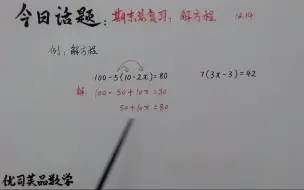 今日话题：期末总复习：解方程 12.14
例：解方程
100-5(10-2x)=80
7(3x-3)=42
解：100-50+10x=80
50+10x=80
优司芙品数学